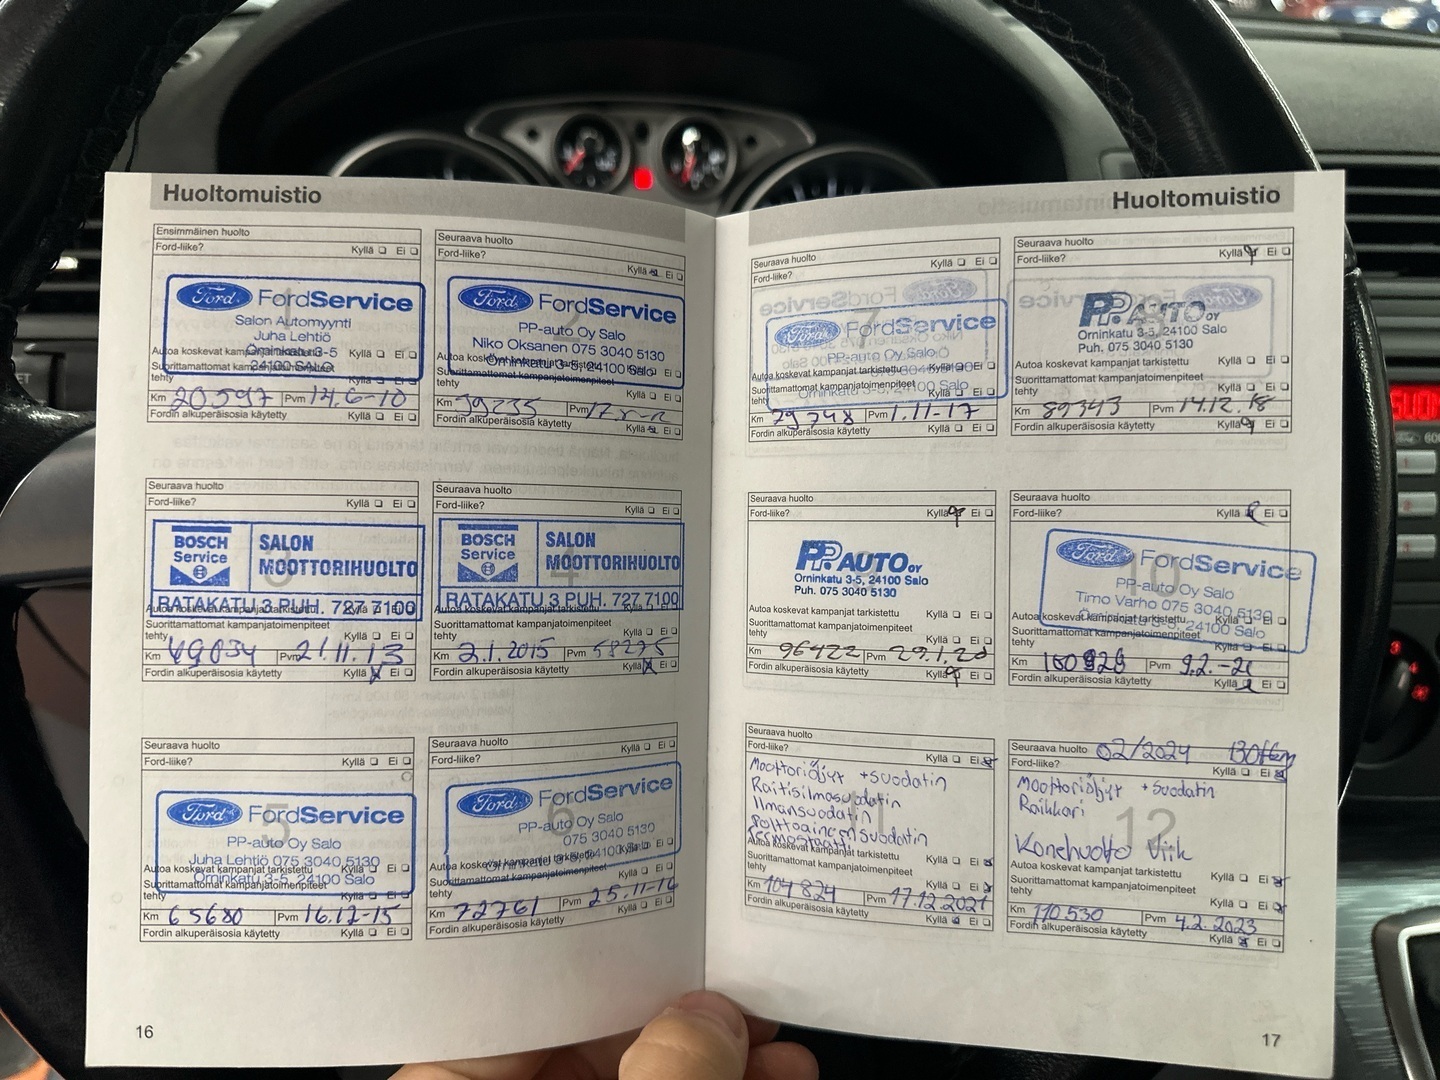 Huoltomuistio
Ensimmäinen huolto
Ford-liike? Kyllä Ei
1
Ford FordService
Salon Automyynti
Juha Lehtiö
Örninkatu 3-5
24100 SALO
Autoa koskevat kampanjat tarkistettu Kyllä Ei
Suorittamattomat kampanjatoimenpiteet
tehty Kyllä Ei
Km 20597 Pvm 14.6-10
Fordin alkuperäisosia käytetty Kyllä Ei
Seuraava huolto
Ford-liike? Kyllä Ei
Ford FordService
PP-auto Oy Salo
Niko Oksanen 075 3040 5130
Örninkatu 3-5, 24100 Salo
Autoa koskevat kampanjat tarkistettu Kyllä Ei
Suorittamattomat kampanjatoimenpiteet
tehty Kyllä Ei
Km 39235 Pvm
Fordin alkuperäisosia käytetty Kyllä Ei
Seuraava huolto
Ford-liike? Kyllä Ei
3
BOSCH Service
SALON
MOOTTORIHUOLTO
RATAKATU 3 PUH. 727 7100
Autoa koskevat kampanjat tarkistettu Kyllä Ei
Suorittamattomat kampanjatoimenpiteet
tehty Kyllä Ei
Km 49834 Pvm 21.11.13
Fordin alkuperäisosia käytetty Kyllä Ei
Seuraava huolto
Ford-liike? Kyllä Ei
4
BOSCH Service
SALON
MOOTTORIHUOLTO
RATAKATU 3 PUH. 727 7100
Autoa koskevat kampanjat tarkistettu Kyllä Ei
Suorittamattomat kampanjatoimenpiteet
tehty Kyllä Ei
Km 2.1.2015 Pvm 58275
Fordin alkuperäisosia käytetty Kyllä Ei
Seuraava huolto
Ford-liike? Kyllä Ei
5
Ford FordService
PP-auto Oy Salo
Juha Lehtiö 075 3040 5130
Örninkatu 3-5, 24100 Salo
Autoa koskevat kampanjat tarkistettu Kyllä Ei
Suorittamattomat kampanjatoimenpiteet
tehty Kyllä Ei
Km 65680 Pvm 16.12-15
Fordin alkuperäisosia käytetty Kyllä Ei
Seuraava huolto
Ford-liike? Kyllä Ei
6
Ford FordService
PP-auto Oy Salo
075 3040 5130
Örninkatu 3-5, 24100 Salo
Autoa koskevat kampanjat tarkistettu Kyllä Ei
Suorittamattomat kampanjatoimenpiteet
tehty Kyllä Ei
Km 72761 Pvm 25.11-16
Fordin alkuperäisosia käytetty Kyllä Ei
16
Huoltomuistio
Seuraava huolto
Ford-liike? Kyllä Ei
7
Ford FordService
PP-auto Oy Salo
075 3040 5130
Örninkatu 3-5, 24100 Salo
Autoa koskevat kampanjat tarkistettu Kyllä Ei
Suorittamattomat kampanjatoimenpiteet
tehty Kyllä Ei
Km 79748 Pvm 1.11-17
Fordin alkuperäisosia käytetty Kyllä Ei
Seuraava huolto
Ford-liike? Kyllä Ei
8
PP AUTO OY
Örninkatu 3-5, 24100 Salo
Puh. 075 3040 5130
Autoa koskevat kampanjat tarkistettu Kyllä Ei
Suorittamattomat kampanjatoimenpiteet
tehty Kyllä Ei
Km 89343 Pvm 14.12.18
Fordin alkuperäisosia käytetty Kyllä Ei
Seuraava huolto
Ford-liike? Kyllä Ei
PP AUTO OY
Örninkatu 3-5, 24100 Salo
Puh. 075 3040 5130
Autoa koskevat kampanjat tarkistettu Kyllä Ei
Suorittamattomat kampanjatoimenpiteet
tehty Kyllä Ei
Km 96422 Pvm 29.1.20
Fordin alkuperäisosia käytetty Kyllä Ei
Seuraava huolto
Ford-liike? Kyllä Ei
10
Ford FordService
PP-auto Oy Salo
Timo Varho 075 3040 5130
Örninkatu 3-5, 24100 Salo
Autoa koskevat kampanjat tarkistettu Kyllä Ei
Suorittamattomat kampanjatoimenpiteet
tehty Kyllä Ei
Km 100928 Pvm 9.2.-21
Fordin alkuperäisosia käytetty Kyllä Ei
Seuraava huolto
Ford-liike? Kyllä Ei
Moottoriöljyt + suodatin
Raitisilmasuodatin
Ilmansuodatin
polttoaineensuodatin
Autoa koskevat kampanjat tarkistettu Kyllä Ei
Suorittamattomat kampanjatoimenpiteet
tehty Kyllä Ei
Km 104 824 Pvm 17.12.2021
Fordin alkuperäisosia käytetty Kyllä Ei
Seuraava huolto 02/2024
Ford-liike? Kyllä Ei
12
Moottoriöljyt + suodatin
Raikkari
Konehuolto Viik
Autoa koskevat kampanjat tarkistettu Kyllä Ei
Suorittamattomat kampanjatoimenpiteet
tehty Kyllä Ei
Km 110.530 Pvm 4.2.2023
Fordin alkuperäisosia käytetty Kyllä Ei
17